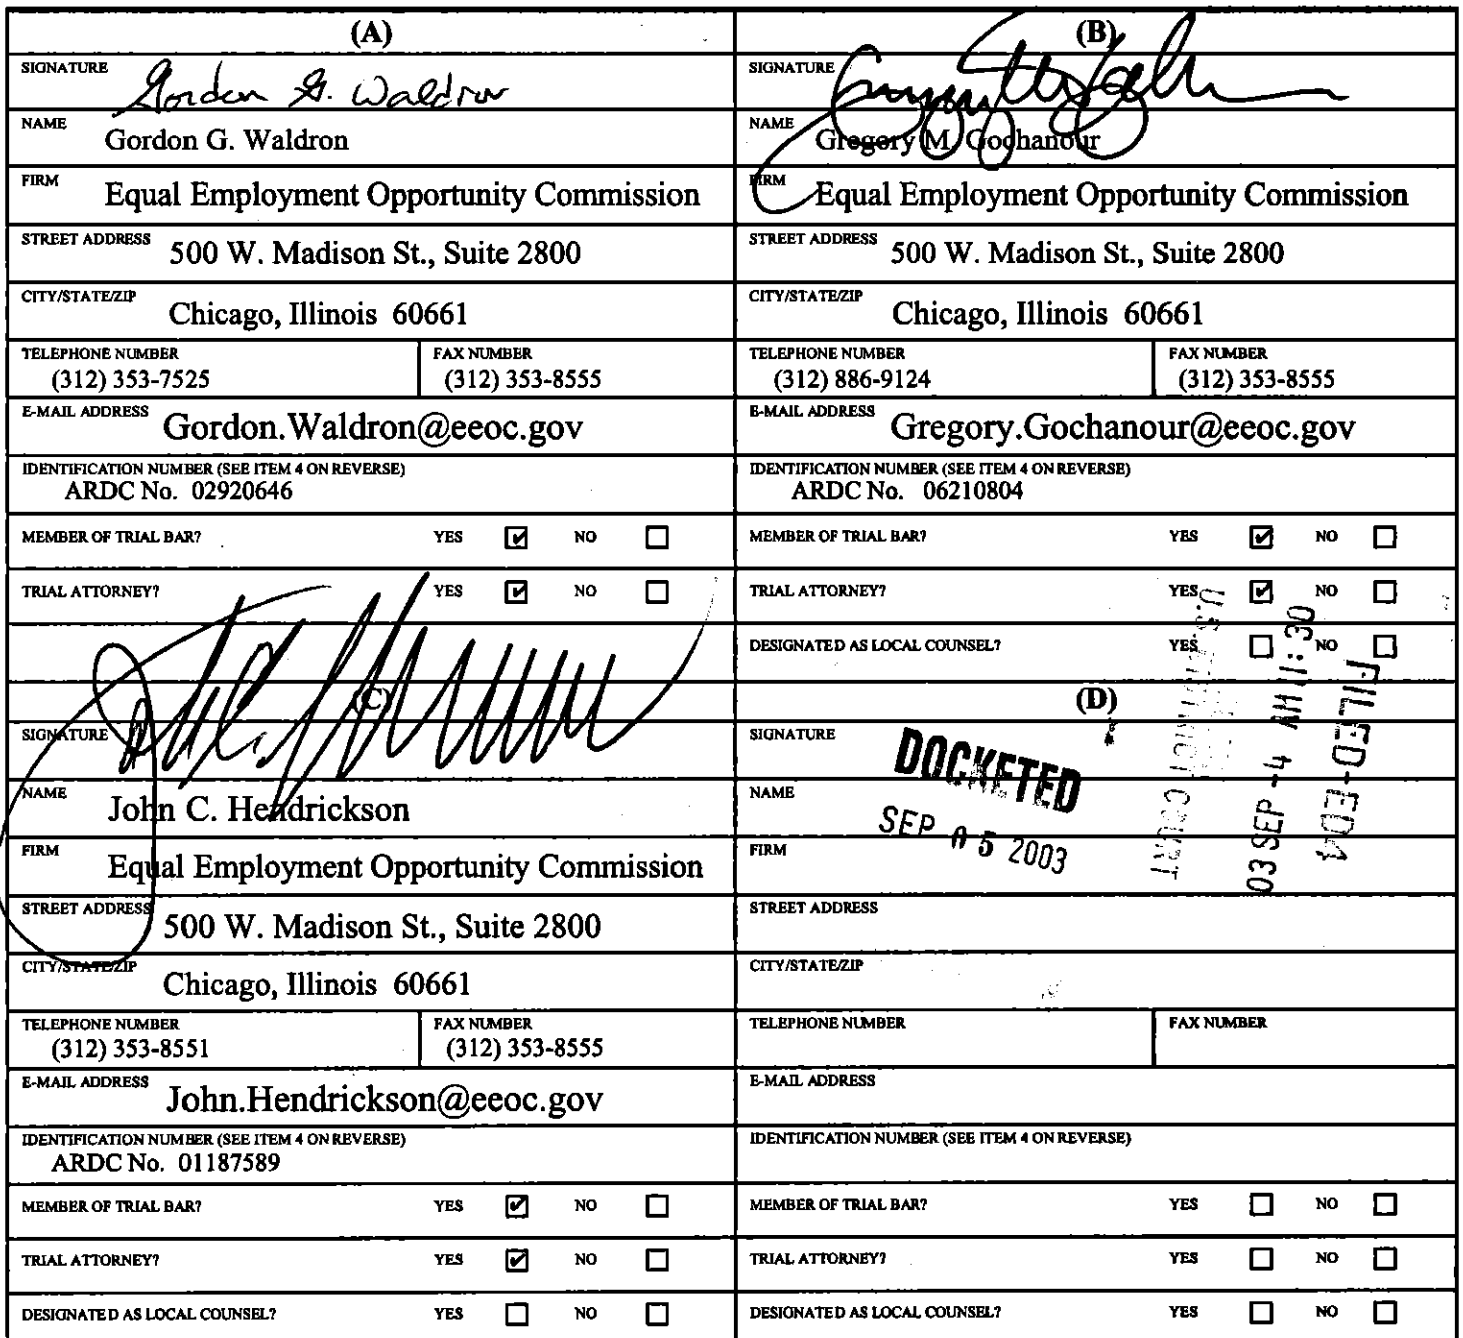 (A)
SIGNATURE Gordon G. Waldron
NAME Gordon G. Waldron
FIRM Equal Employment Opportunity Commission
STREET ADDRESS 500 W. Madison St., Suite 2800
CITY/STATE/ZIP Chicago, Illinois 60661
TELEPHONE NUMBER FAX NUMBER
(312) 353-7525 (312) 353-8555
E-MAIL ADDRESS Gordon.Waldron@eeoc.gov
IDENTIFICATION NUMBER (SEE ITEM 4 ON REVERSE)
ARDC No. 02920646
MEMBER OF TRIAL BAR? YES ☑ NO ☐
TRIAL ATTORNEY? YES ☑ NO ☐
(B)
SIGNATURE
NAME Gregory M. Gochanour
FIRM Equal Employment Opportunity Commission
STREET ADDRESS 500 W. Madison St., Suite 2800
CITY/STATE/ZIP Chicago, Illinois 60661
TELEPHONE NUMBER FAX NUMBER
(312) 886-9124 (312) 353-8555
E-MAIL ADDRESS Gregory.Gochanour@eeoc.gov
IDENTIFICATION NUMBER (SEE ITEM 4 ON REVERSE)
ARDC No. 06210804
MEMBER OF TRIAL BAR? YES ☑ NO ☐
TRIAL ATTORNEY? YES ☑ NO ☐
DESIGNATED AS LOCAL COUNSEL? YES ☐ NO ☐
(C)
SIGNATURE
NAME John C. Hendrickson
FIRM Equal Employment Opportunity Commission
STREET ADDRESS 500 W. Madison St., Suite 2800
CITY/STATE/ZIP Chicago, Illinois 60661
TELEPHONE NUMBER FAX NUMBER
(312) 353-8551 (312) 353-8555
E-MAIL ADDRESS John.Hendrickson@eeoc.gov
IDENTIFICATION NUMBER (SEE ITEM 4 ON REVERSE)
ARDC No. 01187589
MEMBER OF TRIAL BAR? YES ☑ NO ☐
TRIAL ATTORNEY? YES ☑ NO ☐
DESIGNATED AS LOCAL COUNSEL? YES ☐ NO ☐
(D)
SIGNATURE
NAME
FIRM
STREET ADDRESS
CITY/STATE/ZIP
TELEPHONE NUMBER FAX NUMBER
E-MAIL ADDRESS
IDENTIFICATION NUMBER (SEE ITEM 4 ON REVERSE)
MEMBER OF TRIAL BAR? YES ☐ NO ☐
TRIAL ATTORNEY? YES ☐ NO ☐
DESIGNATED AS LOCAL COUNSEL? YES ☐ NO ☐
DOCKETED
SEP 05 2003
FILED-ED4
03 SEP -4 AM 11:30
U.S. DISTRICT COURT